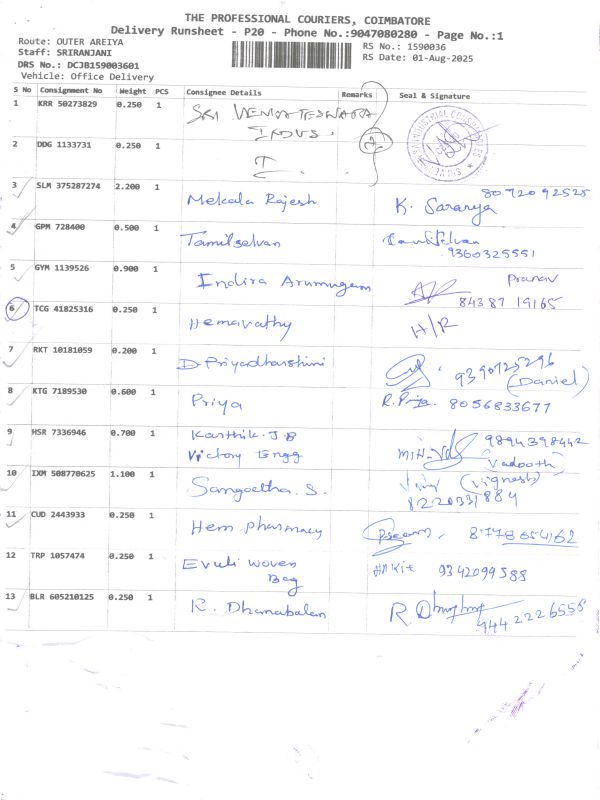 THE PROFESSIONAL COURIERS, COIMBATORE
Delivery Runsheet - P20 - Phone No.:9047080280 - Page No.:1
Route: OUTER AREIYA
RS No.: 1590036
Staff: SRIRANJANI
RS Date: 01-Aug-2025
DRS No.: DCJB159003601
Vehicle: Office Delivery
S No Consignment No Weight PCS Consignee Details Remarks Seal & Signature
1 KRR 50273829 0.250 1 SRI VENKATESWARA
INDUS.
2 DDG 1133731 0.250 1
3 SLM 375287274 2.200 1 Mekala Rajesh K. Saranya
4 GPM 728400 0.500 1 Tamilselvan
9360325551
5 GYM 1139526 0.900 1 Indira Arumugam Pranav
84387 19165
6 TCG 41825316 0.250 1 Hemavathy H/R
7 RKT 10181059 0.200 1 D. Priyadharshini
(Daniel)
8 KTG 7189530 0.600 1 Priya R. Priya. 8056833677
9 HSR 7336946 0.700 1 Karthik. J.B 9894398442
Victory Engg
10 IXM 508770625 1.100 1 Sangeetha. S. (Vignesh)
11 CUD 2443933 0.250 1 Hem pharmacy
12 TRP 1057474 0.250 1 Evuli woven 9342099588
Bag
13 BLR 605210125 0.250 1 R. Dhanabalan